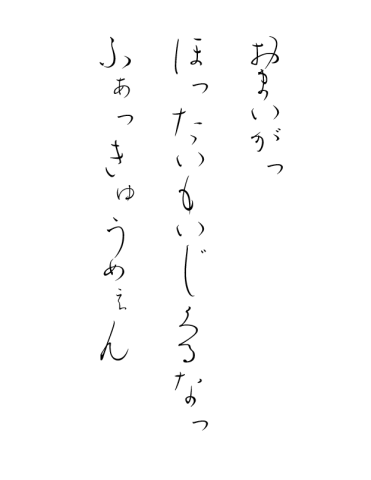 おまいがっ
ほったいもいじくるなっ
ふぁっきゅうめぇん